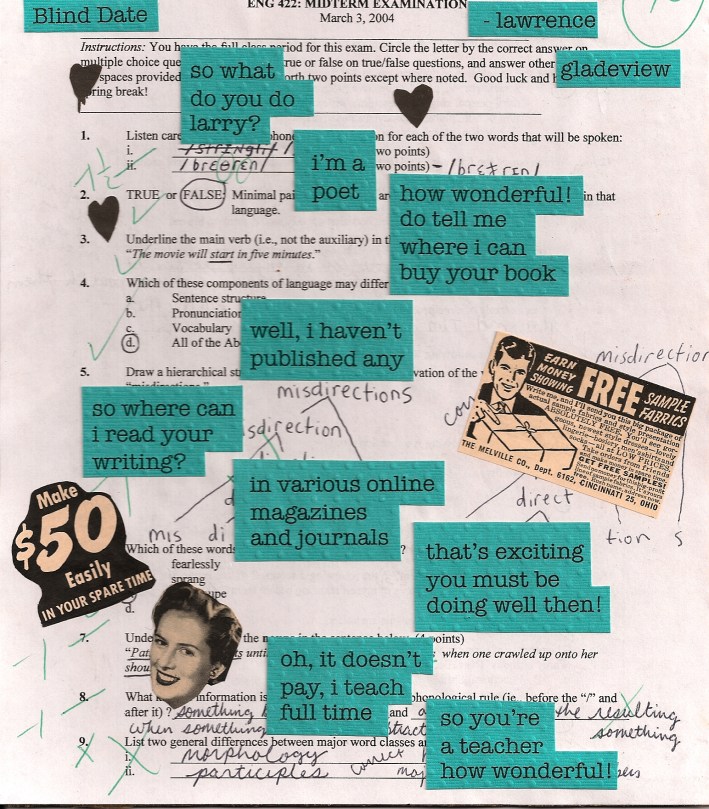 ENG 422: MIDTERM EXAMINATION
Blind Date
- lawrence
March 3, 2004
gladeview
Instructions: You have the full class period for this exam. Circle the letter by the correct answer on
multiple choice que
true or false on true/false questions, and answer other
spaces provided
orth two points except where noted. Good luck and h
ring break!
so what
do you do
larry?
1. Listen care
phone
n for each of the two words that will be spoken:
i.
wo points)
ii. /brɛθrɛn/
wo points)
i'm a
poet
1½
2. TRUE or FALSE: Minimal pai
ar
in that
language.
how wonderful!
do tell me
where i can
buy your book
3. Underline the main verb (i.e., not the auxiliary) in t
"The movie will start in five minutes."
4. Which of these components of language may differ
a. Sentence structure
b. Pronunciation
c. Vocabulary
d. All of the Ab
well, i haven't
published any
5. Draw a hierarchical st
vation of the
"misdirections."
misdirections
misdirection
so where can
i read your
writing?
sdirection
EARN
MONEY
SHOWING
FREE
SAMPLE
FABRICS
Write me, and I'll send you this big package of
actual sample fabrics and style presentation
ABSOLUTELY FREE. You'll see gor-
geous, newest style dresses—lovely
lingerie—hosiery, men's shirts and
socks—all at LOW PRICES.
Take orders from friends
GET FREE SAMPLES!
THE MELVILLE CO., Dept. 6162, CINCINNATI 25, OHIO
in various online
magazines
and journals
direct
mis
di
tion
s
Make
$50
Easily
IN YOUR SPARE TIME
Which of these words
?
fearlessly
sprang
upe
d.
that's exciting
you must be
doing well then!
-1
7. Unde
the n
in the sentence below. (4 points)
"Pat
s unti
when one crawled up onto her
shou
oh, it doesn't
pay, i teach
full time
-1
8. What
information is
phonological rule (ie., before the "/" and
after it) ? something
and
the resulting
when something
something
so you're
a teacher
how wonderful!
9. List two general differences between major word classes a
i. morphology
ii. participles